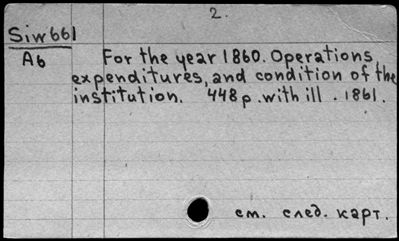 2.
Siw661
A6
For the year 1860. Operations,
expenditures, and condition of the
institution. 448p. with ill. 1861.
см. след. карт.